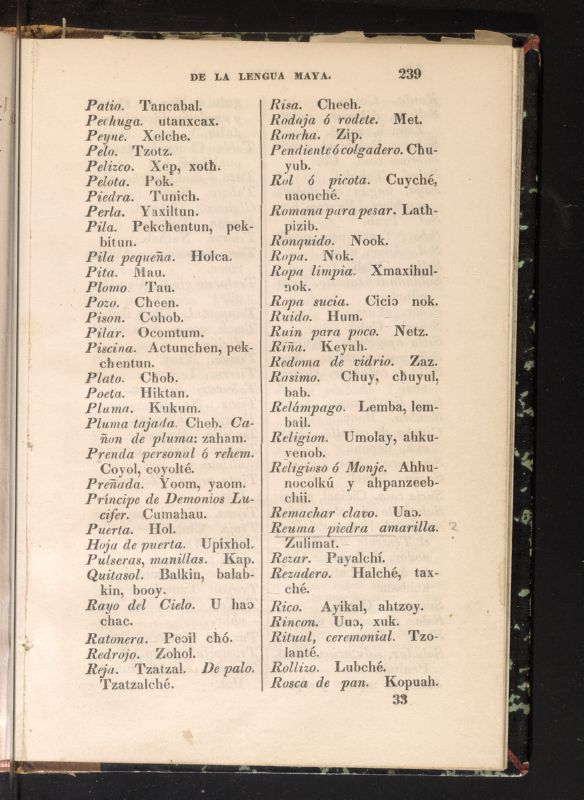 DE LA LENGUA MAYA. 239
Patio. Tancabal.
Pechuga. utanxcax.
Peyne. Xelche.
Pelo. Tzotz.
Pelizco. Xep, xotħ.
Pelota. Pok.
Piedra. Tunich.
Perla. Yaxiltun.
Pila. Pekchentun, pek-
bitun.
Pila pequeña. Holca.
Pita. Mau.
Plomo Tau.
Pozo. Cheen.
Pison. Cohob.
Pilar. Ocomtum.
Piscina. Actunchen, pek-
chentun.
Plato. Cħob.
Poeta. Hiktan.
Pluma. Kukum.
Pluma tajada. Cheb. Ca-
ñon de pluma: zaham.
Prenda personal ó rehem.
Coyol, coyolté.
Preñada. Yoom, yaom.
Príncipe de Demonios Lu-
cifer. Cumahau.
Puerta. Hol.
Hoja de puerta. Upixhol.
Pulseras, manillas. Kap.
Quitasol. Balkin, balab-
kin, booy.
Rayo del Cielo. U haɔ
chac.
Ratonera. Peɔil cħó.
Redrojo. Zohol.
Reja. Tzatzal. De palo.
Tzatzalché.
Risa. Cheeh.
Rodaja ó rodete. Met.
Roncha. Zip.
Pendiente ó colgadero. Cħu-
yub.
Rol ó picota. Cuyché,
uaouché.
Romana para pesar. Lath-
pizib.
Ronquido. Nook.
Ropa. Nok.
Ropa limpia. Xmaxihul-
nok.
Ropa sucia. Ciciɔ nok.
Ruido. Hum.
Ruin para poco. Netz.
Riña. Keyah.
Redoma de vidrio. Zaz.
Rasimo. Cħuy, cħuyul,
bab.
Relámpago. Lemba, lem-
bail.
Religion. Umolay, ahku-
yenob.
Religioso ó Monje. Ahhu-
nocolkú y ahpanzeeb-
chii.
Remachar clavo. Uaɔ.
Reuma piedra amarilla. 2
Zulimat.
Rezar. Payalchí.
Rezadero. Halché, tax-
ché.
Rico. Ayikal, ahtzoy.
Rincon. Uuɔ, xuk.
Ritual, ceremonial. Tzo-
lanté.
Rollizo. Lubché.
Rosca de pan. Kopuah.
33